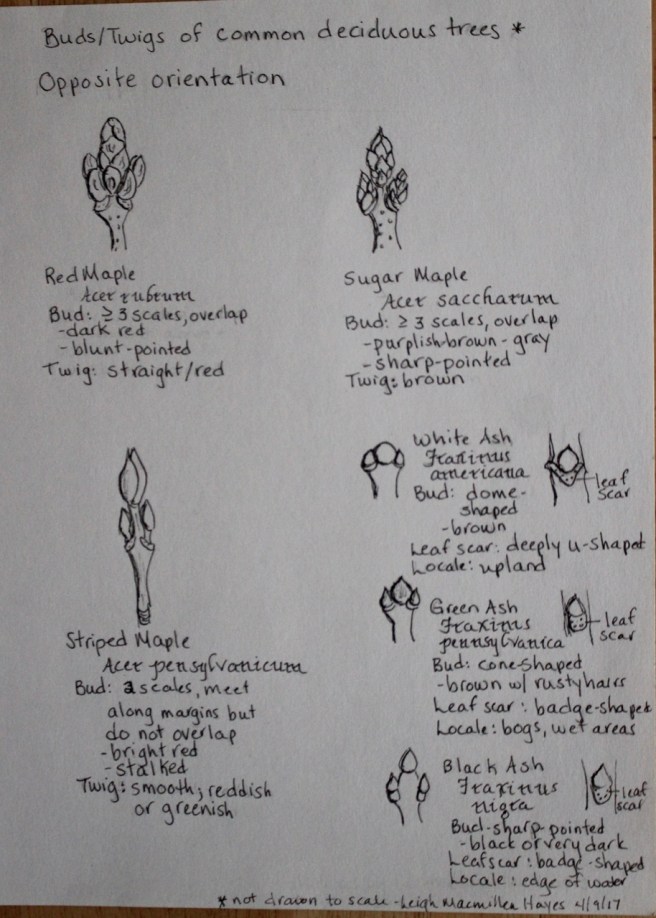 Buds/Twigs of common deciduous trees *
Opposite orientation
Red Maple
Acer rubrum
Bud: ≥ 3 scales, overlap
-dark red
-blunt-pointed
Twig: straight/red
Sugar Maple
Acer saccharum
Bud: ≥ 3 scales, overlap
-purplish-brown-gray
-sharp-pointed
Twig: brown
Striped Maple
Acer pensylvanicum
Bud: 2 scales, meet
along margins but
do not overlap
-bright red
-stalked
Twig: smooth; reddish
or greenish
White Ash
Fraxinus
americana
Bud: dome-
shaped
-brown
Leaf scar: deeply u-shaped
Locale: upland
leaf
scar
Green Ash
Fraxinus
pennsylvanica
Bud: cone-shaped
-brown w/ rusty hairs
Leaf scar: badge-shaped
Locale: bogs, wet areas
leaf
scar
Black Ash
Fraxinus
nigra
Bud-sharp-pointed
-black or very dark
Leaf scar: badge-shaped
Locale: edge of water
leaf
scar
*not drawn to scale -Leigh Macmillen Hayes 4/9/17